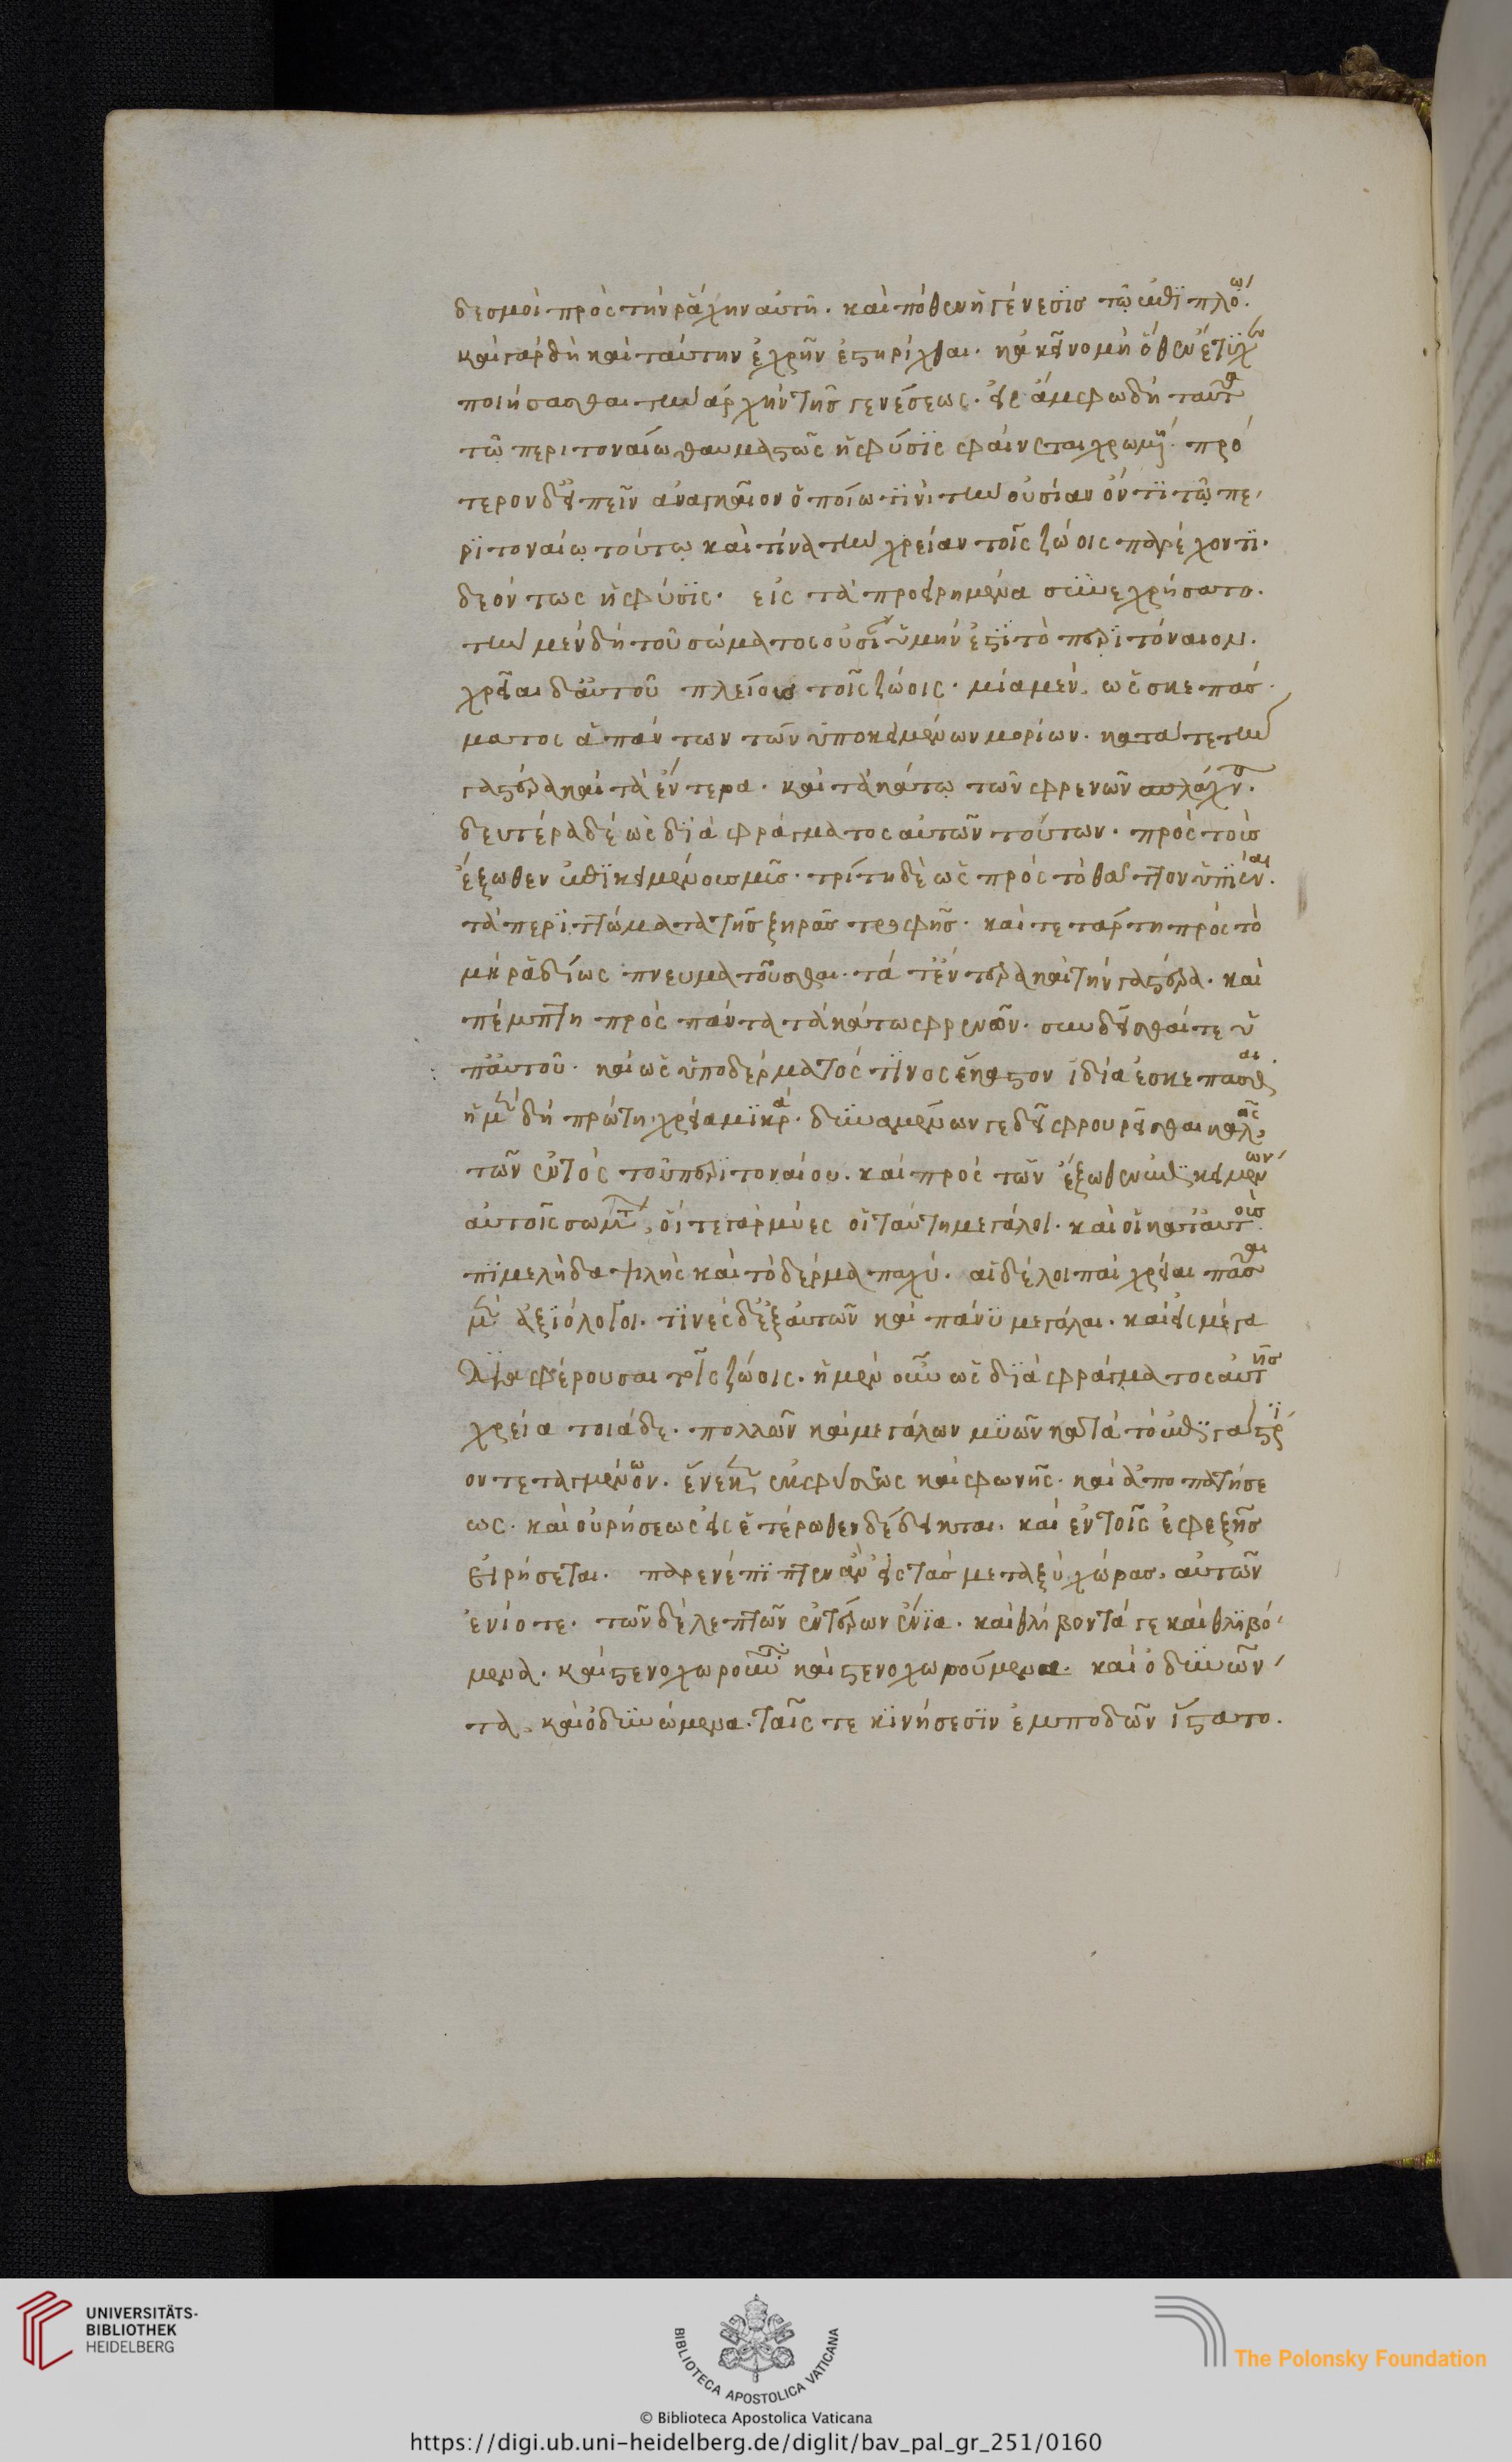 δεσμοὶ πρὸς τὴν ῥάχιν αὐτῆ. καὶ πόθεν ἡ γένεσις τῷ ἐπιπλόω.
καὶ γὰρ δὴ καὶ ταύτην ἐχρῆν ἐστηρίχθαι. κἀκεῖνο μὴ ὅθεν ἔτυχεν
ποιήσασθαι τὴν ἀρχὴν τῆς γενέσεως. εἰς ἄμφω δὴ ταῦτα
τῷ περιτοναίω θαυμαστῶς ἡ φύσις φαίνεται χρωμένη. πρό
τερον δ' εἰπεῖν ἀναγκαῖον ὁποίω τινὶ τὴν οὐσίαν ὄντι τῷ πε
ριτοναίῳ τούτῳ καὶ τίνα τὴν χρείαν τοῖς ζώοις παρέχοντι.
δεόντως ἡ φύσις. εἰς τὰ προειρημένα συνεχρήσατο.
τὴν μὲν δὴ τοῦ σώματος οὐσίαν ὑμήν ἐστι τὸ περιτόναιον.
χρεῖαι δ' αὐτοῦ πλείους τοῖς ζώοις. μία μὲν, ὡς σκεπάσ
ματος ἁπάντων τῶν ὑποκειμένων μορίων. κατά τε τὴν
γαστέρα καὶ τὰ ἔντερα. καὶ τὰ κάτω τῶν φρενῶν σπλάγχνα.
δευτέρα δὲ ὡς διαφράγματος αὐτῶν τούτων. πρὸς τοὺς
ἔξωθεν ἐπικειμένους μῦς. τρίτη δὲ ὡς πρὸς τὸ θᾶττον ὑπιέναι.
τὰ περιττώματα τῆς ξηρᾶς τροφῆς. καὶ τετάρτη πρὸς τὸ
μὴ ῥαδίως πνευματοῦσθαι. τά τ' ἔντερα καὶ τὴν γαστέρα. καὶ
πέμπτη πρὸς πάντα τὰ κάτω φρενῶν. συνδεῖσθαί τε ὑ
π' αὐτοῦ. καὶ ὡς ὑπὸ δέρματός τινος ἕκαστον ἰδία ἐσκεπᾶσθαι.
ἡ μὲν δὴ πρώτη χρεία μικρά. δυναμένων γε δεῖ φρουρεῖσθαι καλῶς
τῶν ἐντὸς τοῦ περιτοναίου. καὶ πρὸς τῶν ἔξωθεν ἐπικειμένων
αὐτοῖς σωμάτων, οἵ τε γὰρ μύες οἱ ταύτη μεγάλοι. καὶ οἱ κατ' αὐτοὺς
πιμελὴ δαψιλὴς καὶ τὸ δέρμα παχύ. αἱ δὲ λοιπαὶ χρεῖαι πᾶσαι
μὲν ἀξιόλογοι. τινὲς δ' ἐξ αὐτῶν καὶ πάνυ μεγάλαι. καὶ εἰς μέγα
διαφέρουσαι τοῖς ζώοις. ἡ μὲν οὖν ὡς διαφράγματος αὐτῆς
χρεία τοιάδε. πολλῶν καὶ μεγάλων μυῶν κατὰ τὸ ἐπιγάστρι
ον τεταγμένων. ἕνεκεν ἐκφυσήσεως καὶ φωνῆς. καὶ ἀποπατήσε
ως. καὶ οὐρήσεως εἰς ἑτέρωθεν δέδεικται. καὶ ἐν τοῖς ἐφεξῆς
εἰρήσεται. παρενέπιπτεν ἂν εἰς τὰς μεταξὺ χώρας, αὐτῶν
ἐνίοτε. τῶν δὲ λεπτῶν ἐντέρων ἔνια. καὶ θλίβοντά τε καὶ θλιβό
μενα. καὶ στενοχωροῦντα καὶ στενοχωρούμενα. καὶ ὀδυνῶν
τα, καὶ ὀδυνώμενα. ταῖς τε κινήσεσιν ἐμποδὼν ἵστατο.
UNIVERSITÄTS-
BIBLIOTHEK
HEIDELBERG
BIBLIOTECA APOSTOLICA VATICANA
The Polonsky Foundation
© Biblioteca Apostolica Vaticana
https://digi.ub.uni-heidelberg.de/diglit/bav_pal_gr_251/0160